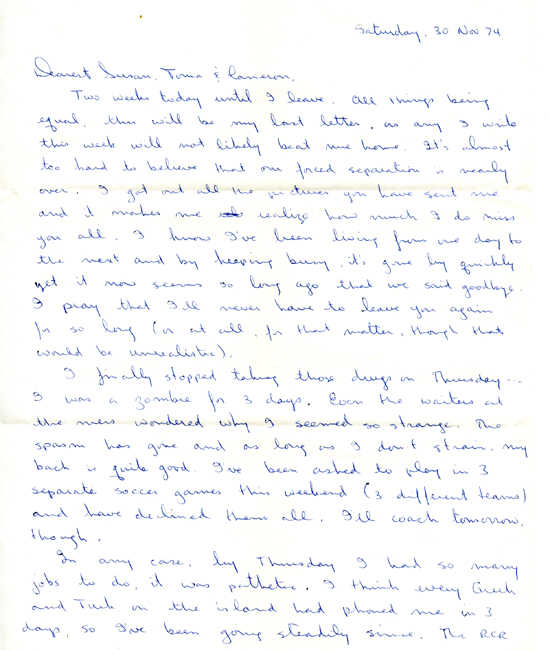 Saturday, 30 Nov 74
Dearest Susan, Tonia & Cameron,
Two weeks today until I leave. All things being
equal, this will be my last letter, as any I write
this week will not likely beat me home. It's almost
too hard to believe that our forced separation is nearly
over. I got out all the pictures you have sent me
and it makes me realize how much I do miss
you all. I know I've been living from one day to
the next and by keeping busy, it's gone by quickly
yet it now seems so long ago that we said goodbye.
I pray that I'll never have to leave you again
for so long (or at all, for that matter, though that
would be unrealistic).
I finally stopped taking those drugs on Thursday -
I was a zombie for 3 days. Even the waiters at
the mess wondered why I seemed so strange. The
spasm has gone and as long as I don't strain, my
back is quite good. I've been asked to play in 3
separate soccer games this weekend (3 different teams)
and have declined them all. I'll coach tomorrow,
though.
In any case, by Thursday I had so many
jobs to do, it was pathetic. I think every Greek
and Turk on the island had phoned me in 3
days, so I've been going steadily since. The RCR